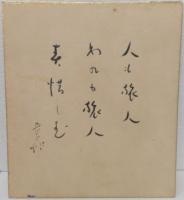 人も旅人
われも旅人
春惜しむ